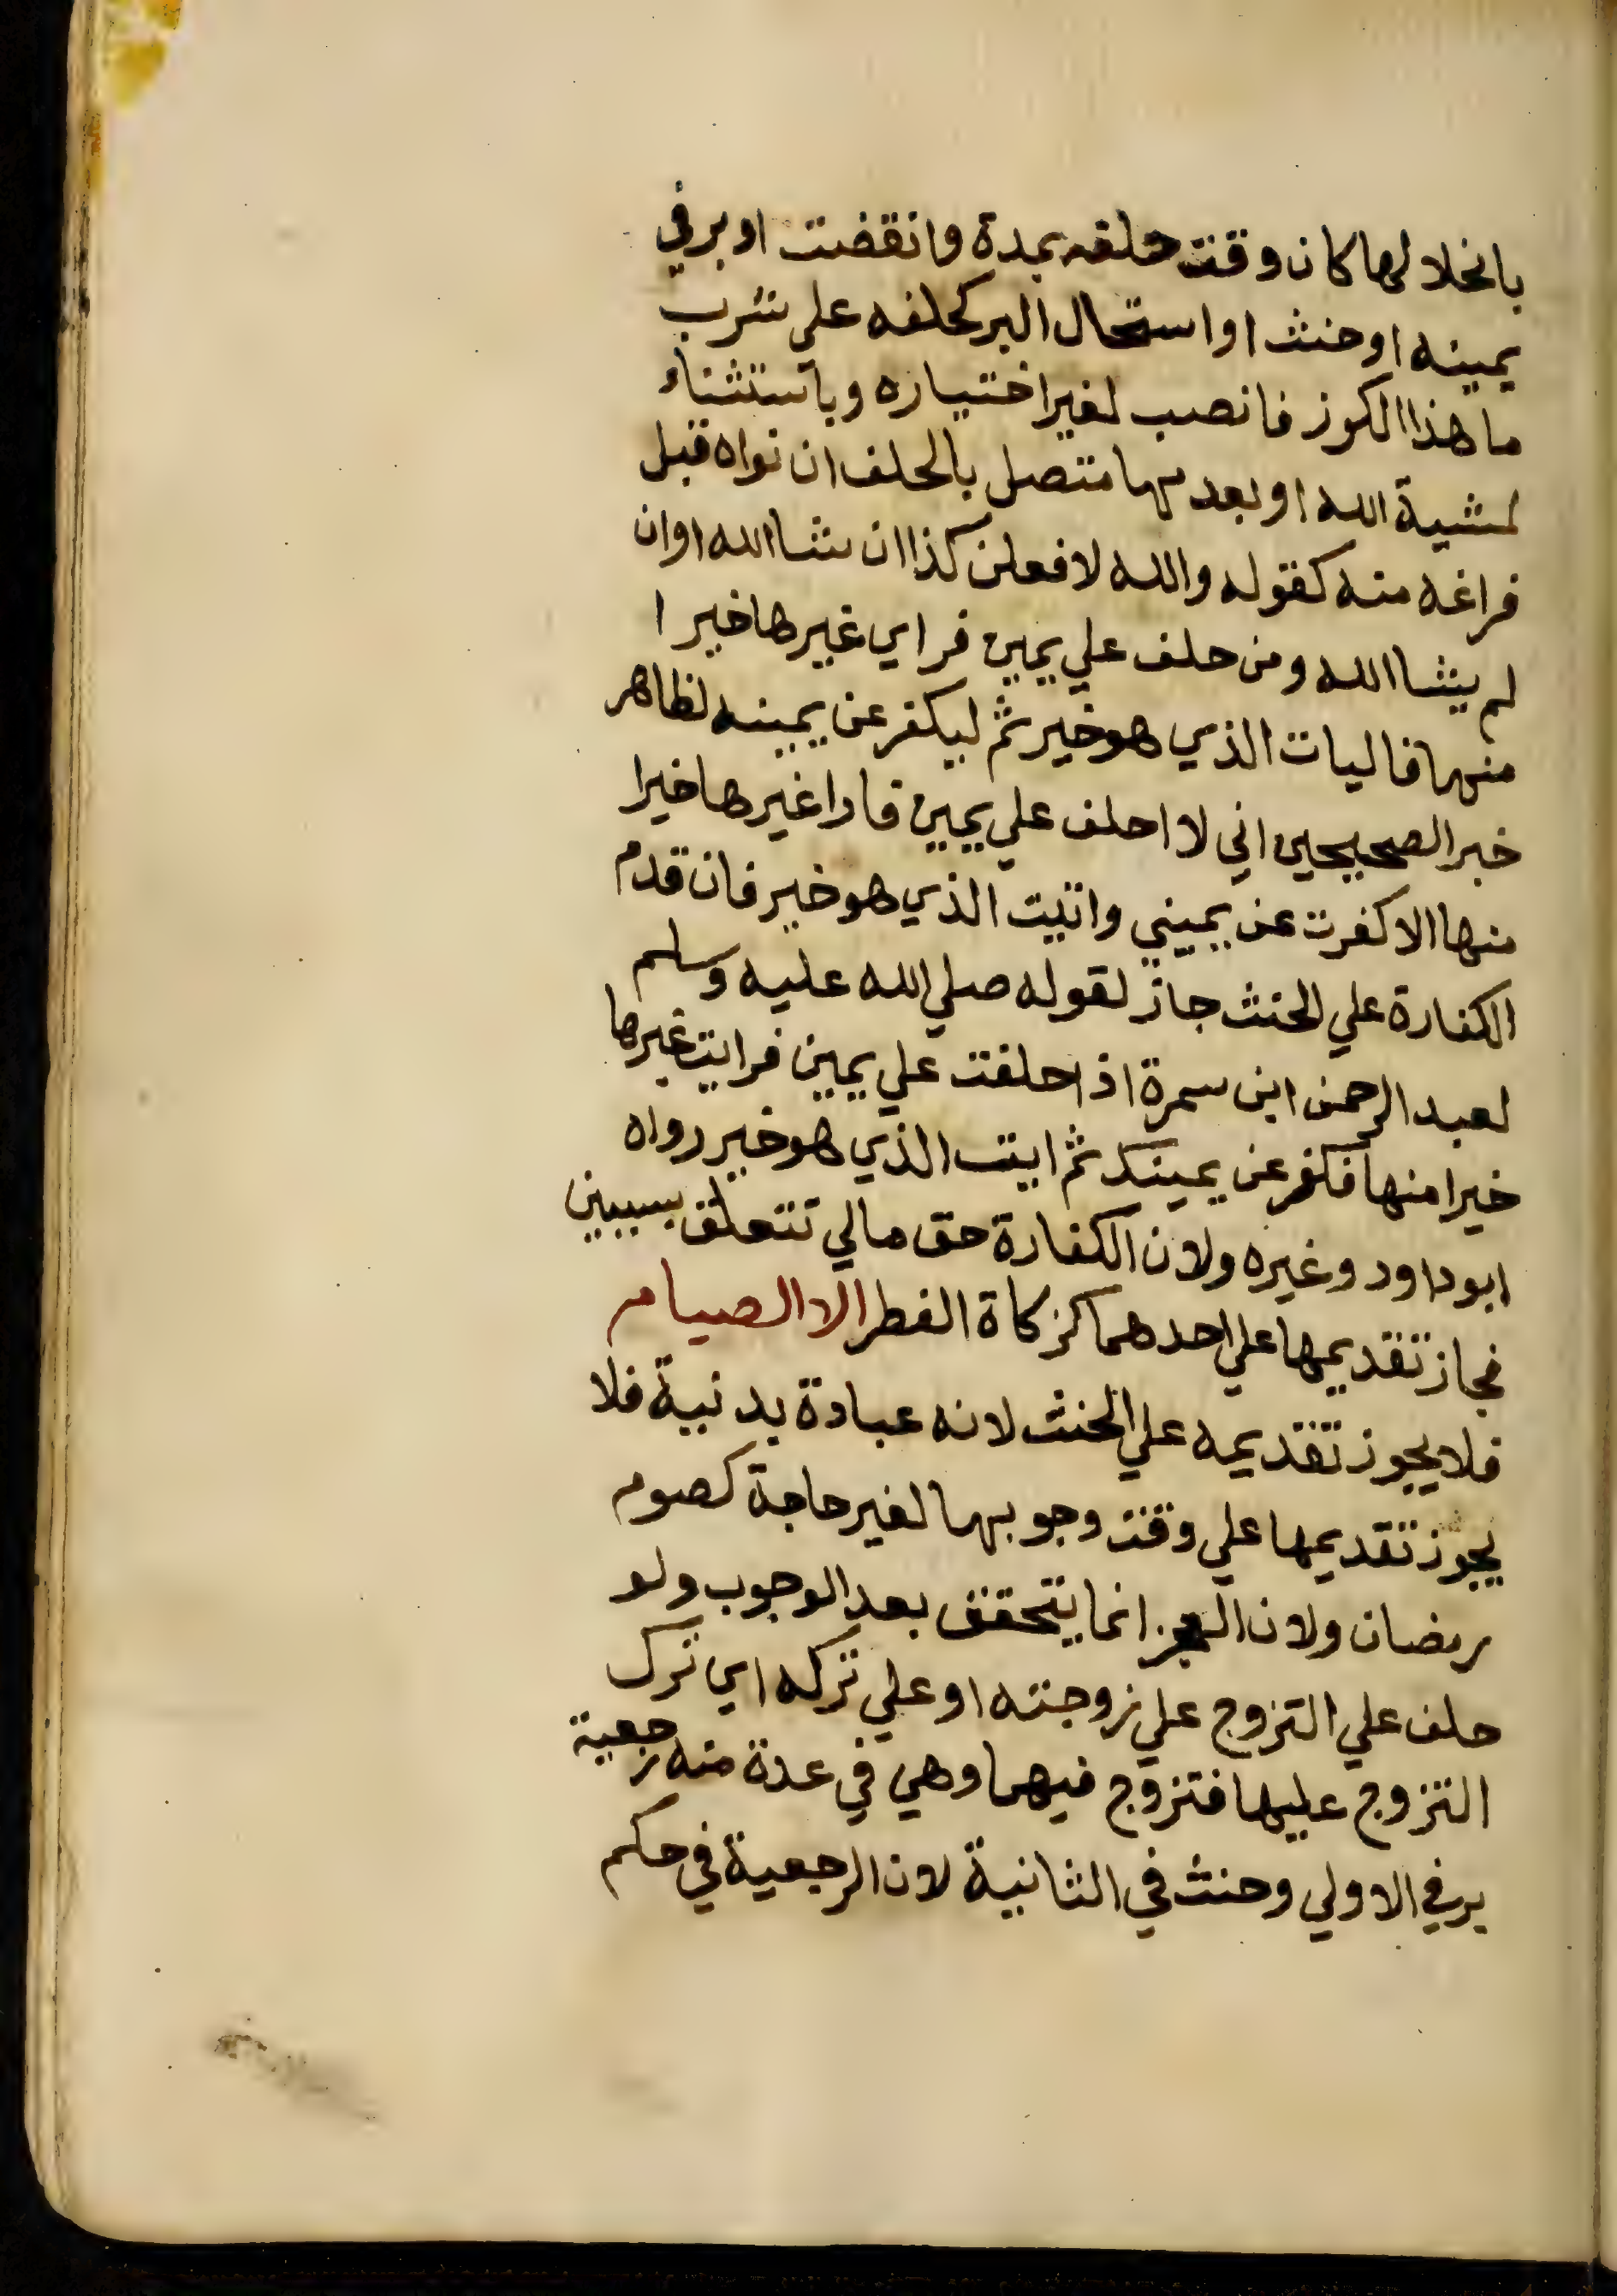 بانحلالها كان وقت حلفه بمدة وانقضت او بر في
يمينه او حنث او استحال البر كحلفه علي شرب
ما هذا الكوز فانصب لغير اختياره وباستثناء
لمشية الله او بعدمها متصل بالحلف ان نواه قبل
فراغه منه كقوله والله لافعلن كذا ان شا الله او ان
لم يشا الله ومن حلف علي يمين فراي غيرها خيرا
منها فاليات الذي هو خير ثم ليكفر عن يمينه لظاهر
خبر الصحيحين اني لا احلف علي يمين فارا غيرها خيرا
منها الا كفرت عن يميني واتيت الذي هو خير فان قدم
الكفارة علي الحنث جاز لقوله صلي الله عليه وسلم
لعبد الرحمن ابن سمرة اذا حلفت علي يمين فرايت غيرها
خيرا منها فكفر عن يمينك ثم ايت الذي هو خير رواه
ابوداود وغيره ولان الكفارة حق مالي تتعلق بسببين
فجاز تقديمها علي احدهما كزكاة الفطر الا الصيام
فلا يجوز تقديمه علي الحنث لانه عبادة بدنية فلا
يجوز تقديمها علي وقت وجوبها لغير حاجة كصوم
رمضان ولان العجز انما يتحقق بعد الوجوب ولو
حلف علي التزوج علي زوجته او علي تركه اي ترك
التزوج عليها فتزوج فيهما وهي في عدة منه رجعية
بر في الاولي وحنث في الثانية لان الرجعية في حكم